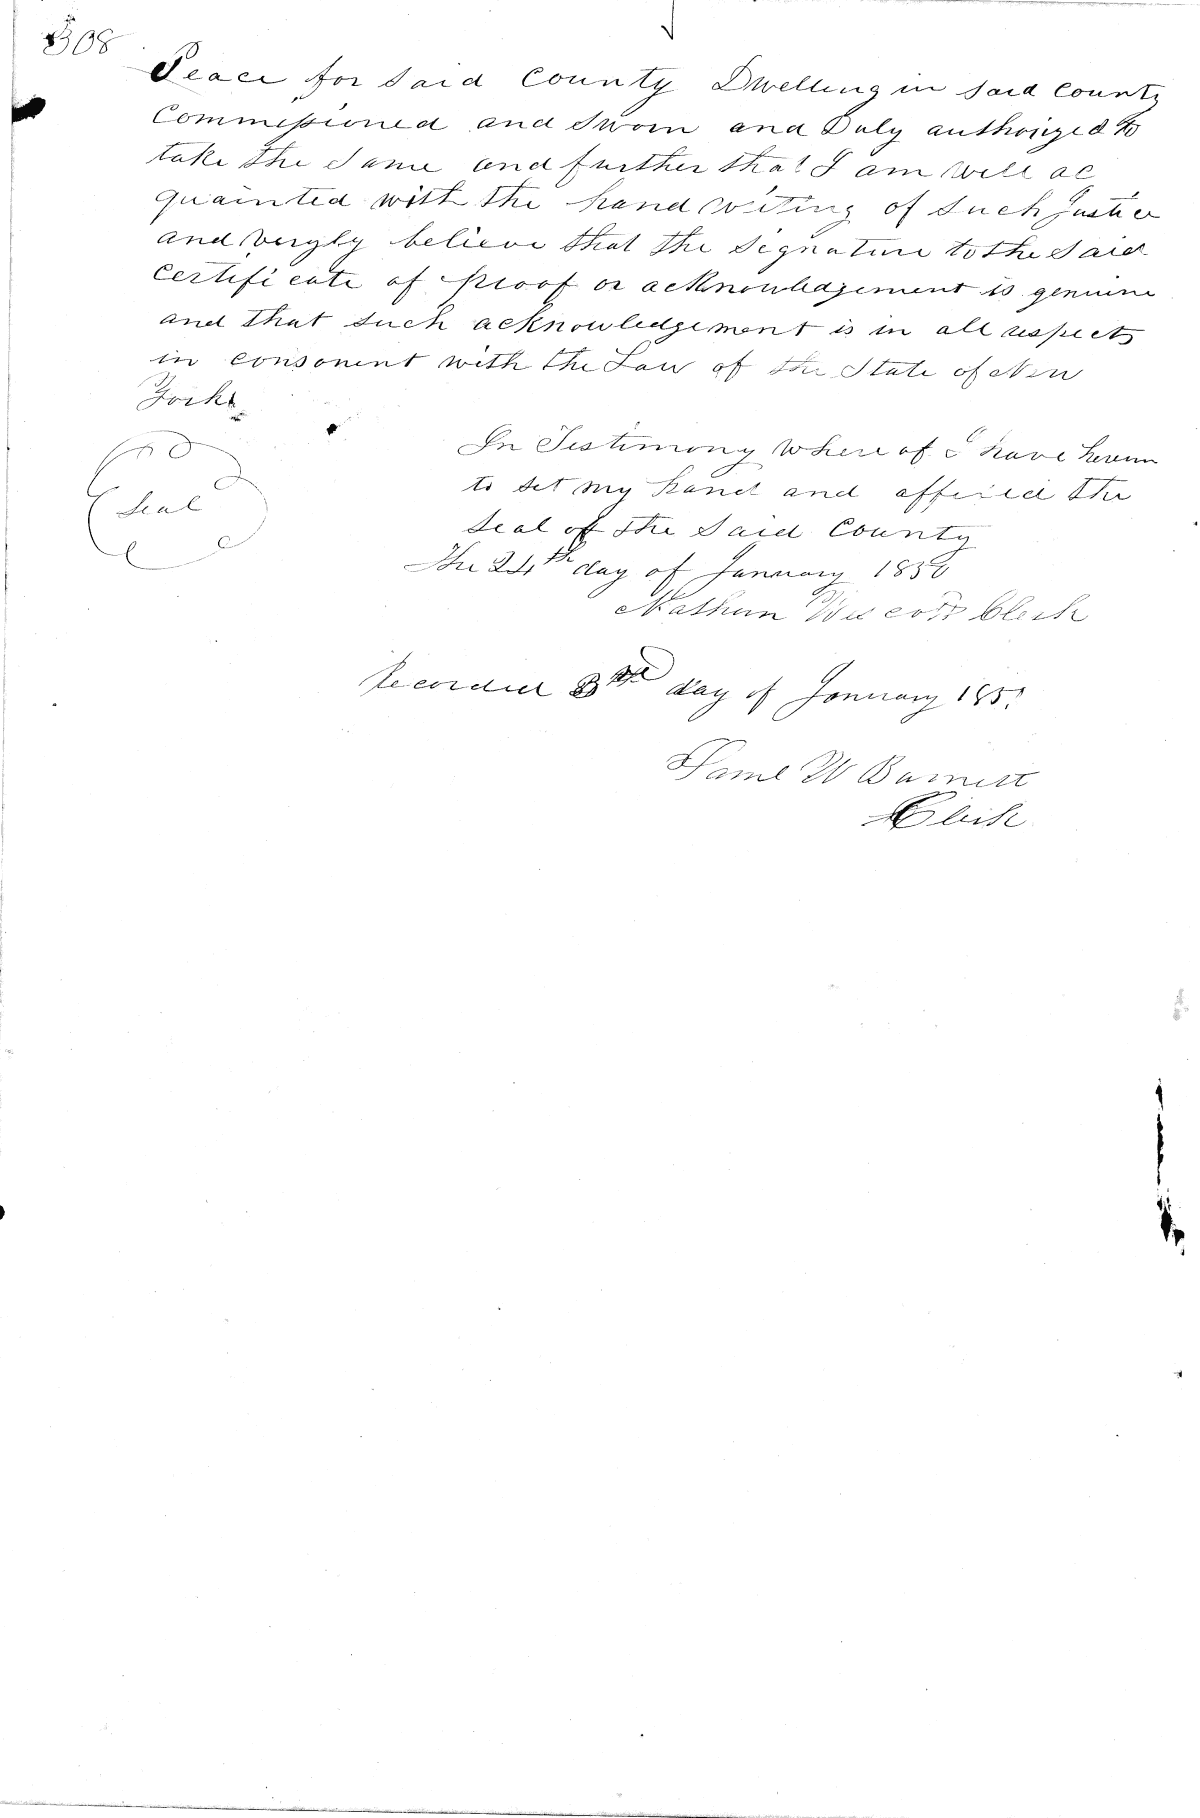 308
Peace for Said County Dwelling in Said County
Commissioned and Sworn and Duly authorized to
take the Same and further that I am well ac
quainted with the hand writing of Such Justice
and veryly believe that the Signature to the Said
Certificate of proof or acknowledgement is genuine
and that Such acknowledgement is in all respects
in consonent with the Law of the State of New
York
In Testimony where of I have hereun
to Set my hand and affixed the
Seal of the Said County
Seal
The 24th day of January 1850
Nathan Wescott Clerk
Recorded day of January
Saml W Barnett
Clerk